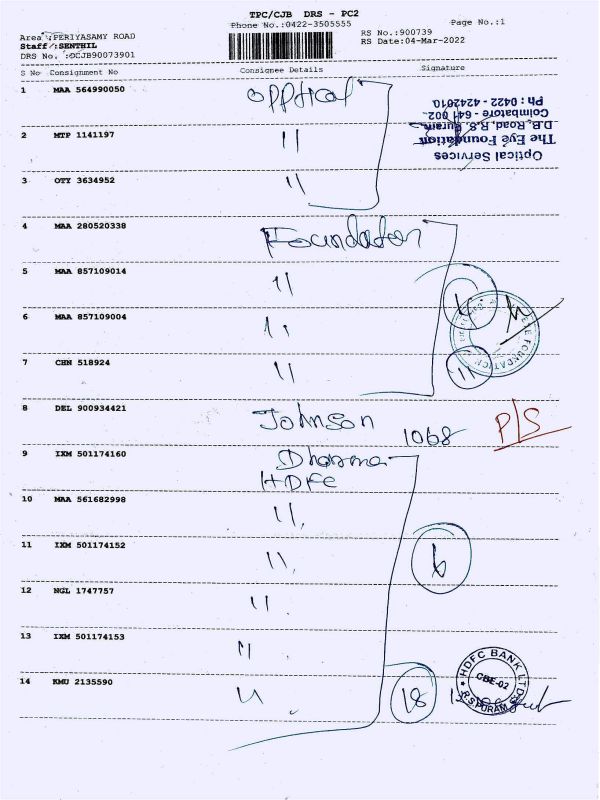 TPC/CJB DRS - PC2
Phone No.:0422-3505555
Page No.:1
Area :PERIYASAMY ROAD
Staff :SENTHIL
DRS No. :OCJB90073901
RS No.:900739
RS Date:04-Mar-2022
S No Consignment No Consignee Details Signature
1 MAA 564990050 Opptical
2 MTP 1141197 "
3 OTY 3634952 "
Optical Services
The Eye Foundation
D.B. Road, R.S. Puram,
Coimbatore - 641 002.
Ph : 0422 - 4242010
4 MAA 280520338 Foundation
5 MAA 857109014 "
6 MAA 857109004 "
7 CHN 518924 "
EYE FOUNDATION
11
8 DEL 900934421 Johnson 1068 P/S
9 IXM 501174160 Dharma
HDFC
10 MAA 561682998 "
11 IXM 501174152 "
12 NGL 1747757 "
13 IXM 501174153 "
14 KMU 2135590 "
18
HDFC BANK LTD
CBE-02
R.S.PURAM